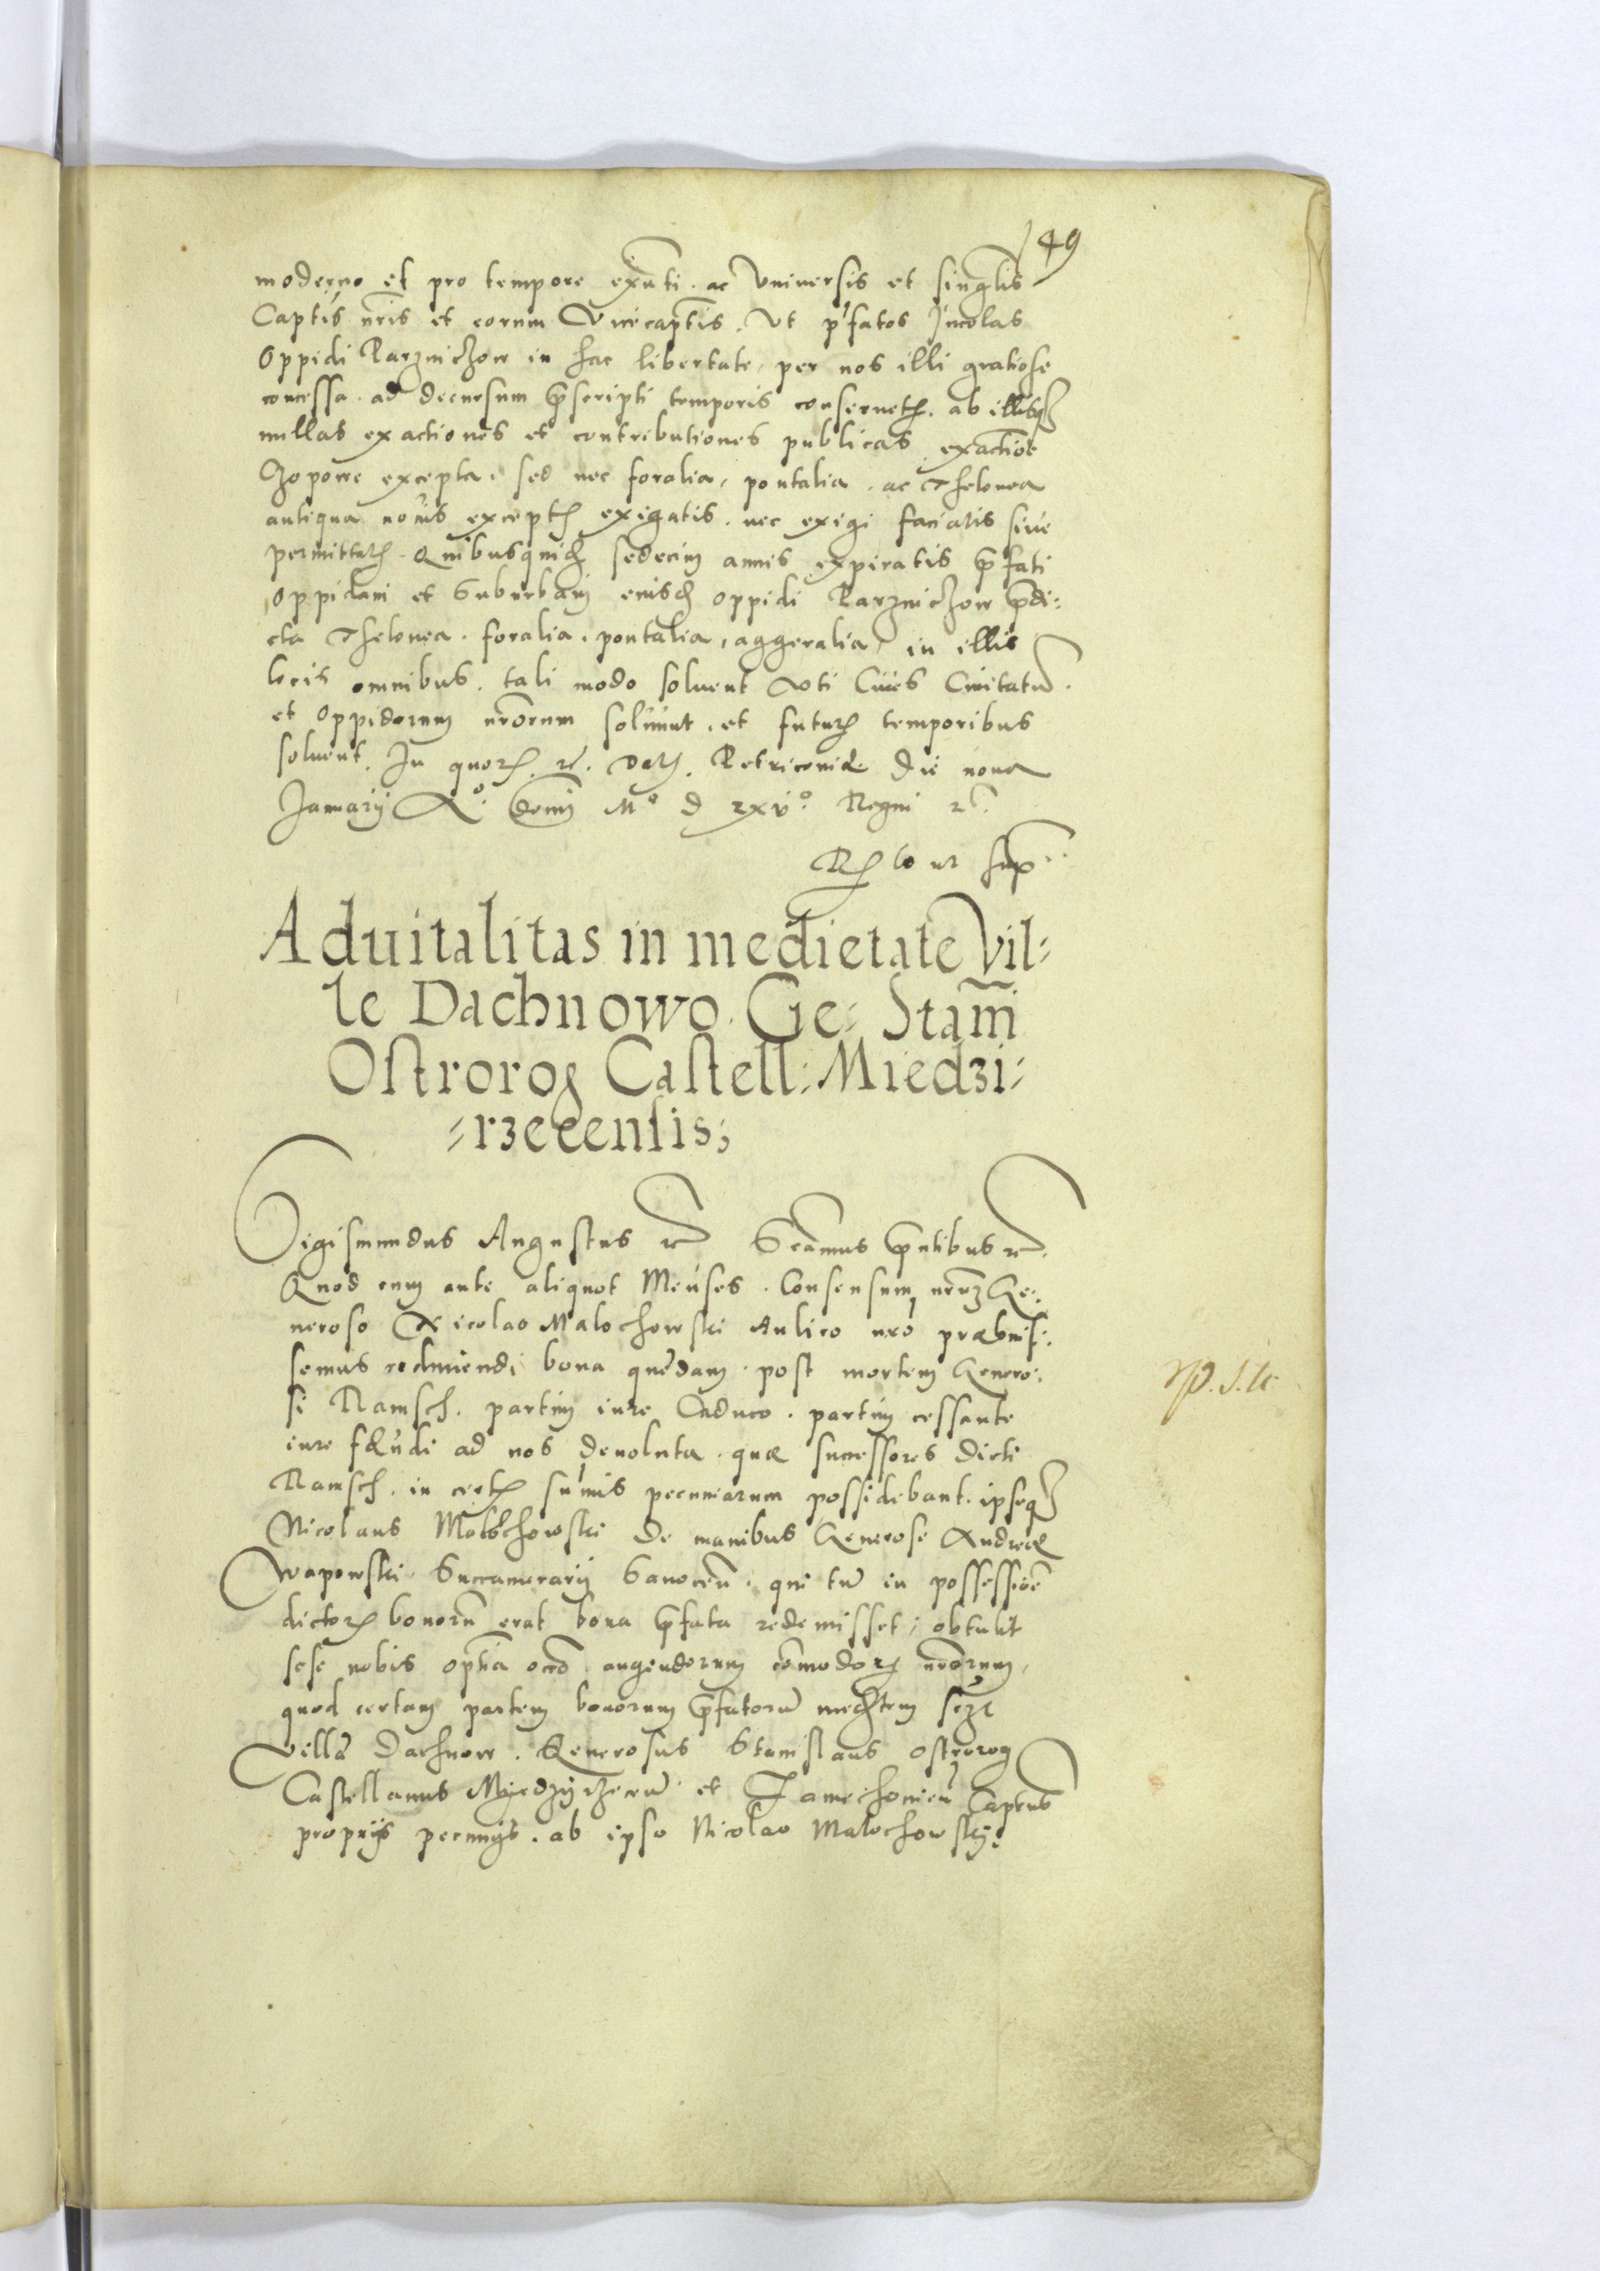 149
moderno et pro tempore exnti . ac Universis et singulis
Captis nris et eorum Vicecaptis . Ut pfatos Incolas
Oppidi Barznichow in hac libertate, per nos illi gratiose
concessa . ad decursum pscripti temporis conservetis . ab illisq
nullas exactiones et contributiones publicas exactioe
Czopowe excepta, sed nec foralia, pontalia . ac Thelonea
antiqua novis exceptis exigatis . nec exigi faciatis sive
permittatis . Quibusquidem sedecim annis expiratis pfati
Oppidani et Suburbani eiusdem oppidi Barznichow pdi:
cta Thelonea . foralia . pontalia, aggeralia, in illis
locis omnibus . tali modo solvent Uti Cives Civitatu .
et Oppidorum nrorum solvunt . et futuris temporibus
solvent . In quor. rc. Dat. Petricovie Die nona
Januarij Ao. domi Mo d lxvo. Regni
Rlo ut sup
Aduitalitas in medietate Vil-
le Dachnowo. Ge: Stam
Ostrorog Castell: Miedzi-
-rzecensis;
Sigismundus Augustus rc Scamus pntibus rc.
Quod cum ante aliquot Menses . Consensum nrum Ge:
neroso Nicolao Malochowski Aulico nro præbuis:
semus redimendi bona quedam . post mortem Genero:
si Ramsch . partim iure Caduco . partim cessante
iure fæudi ad nos devoluta . quæ successores dicti
Ramsch . in certis sumis pecuniarum possidebant . ipseq
Nicolaus Malochowski de manibus Generose Andreæ
Wapowski Succamerarij Sanocen . qui tu in possessioe
dictor bonoru erat bona pfata redemisset, obtulit
sese nobis optia occo augendorum comodor nrorum,
quod certam partem bonorum pfatoru
villa Dachnow . Generosus Stanislaus Ostrorog
Castellanus Myedzyrzecen et Captus
proprijs pecunijs . ab ipso Nicolao Malochowskij: